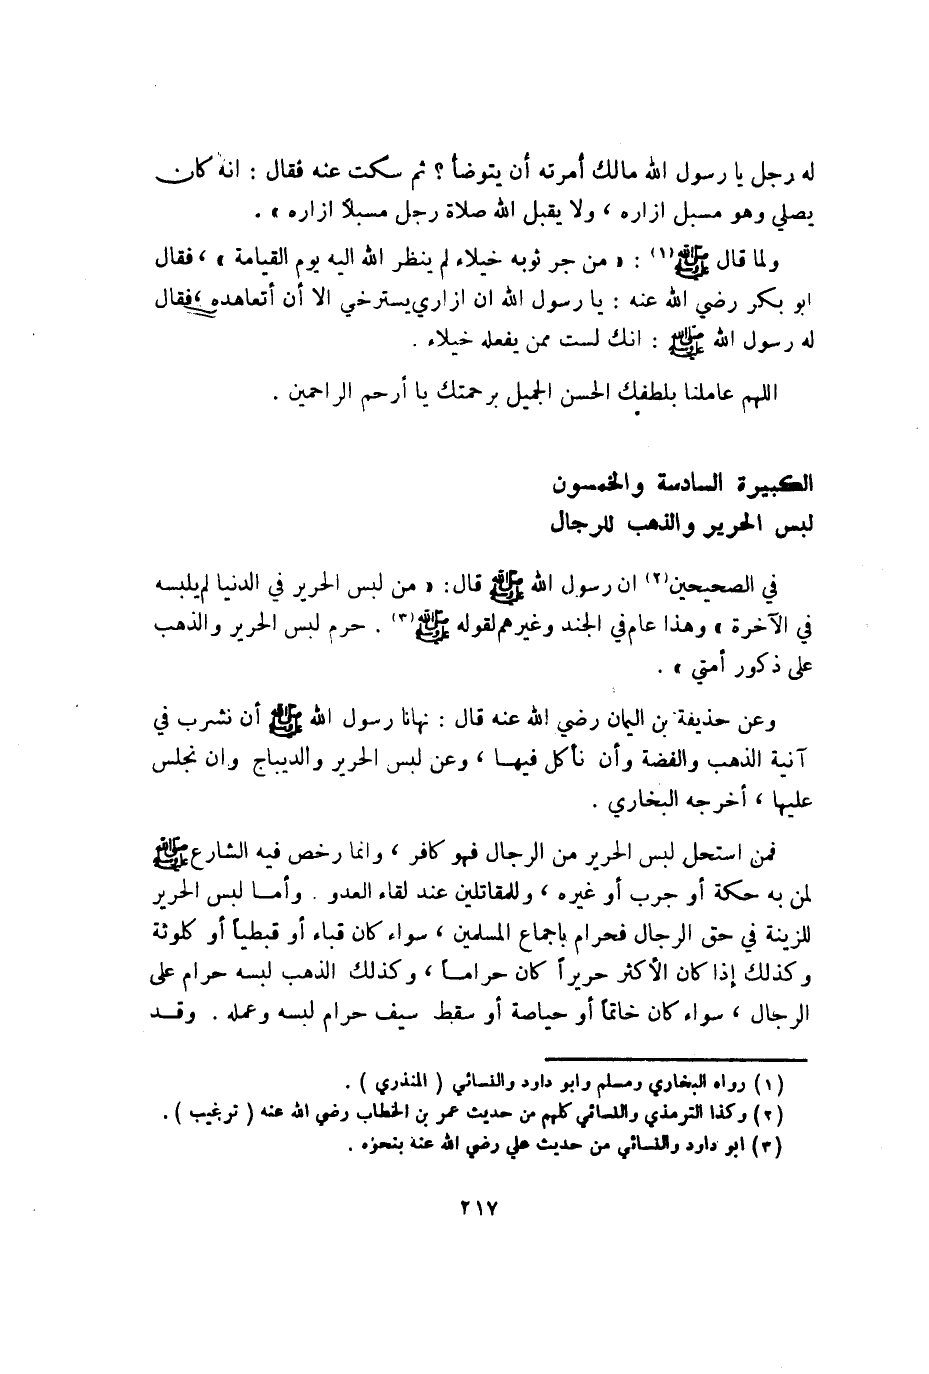 له رجل يا رسول الله مالك أمرته أن يتوضأ ؟ ثم سكت عنه فقال : انه كان
يصلي وهو مسبل ازاره ، ولا يقبل الله صلاة رجل مسبلاً ازاره » .
ولما قال ﷺ (١) : « من جر ثوبه خيلاء لم ينظر الله اليه يوم القيامة » ، فقال
ابو بكر رضي الله عنه : يا رسول الله ان ازاري يسترخي الا أن أتعاهده ، فقال
له رسول الله ﷺ : انك لست ممن يفعله خيلاء .
اللهم عاملنا بلطفك الحسن الجميل برحمتك يا أرحم الراحمين .
الكبيرة السادسة والخمسون
لبس الحرير والذهب للرجال
في الصحيحين (٢) ان رسول الله ﷺ قال : « من لبس الحرير في الدنيا لم يلبسه
في الآخرة » وهذا عام في الجند وغيرهم لقوله ﷺ (٣) . حرم لبس الحرير والذهب
على ذكور أمتي » .
وعن حذيفة بن اليمان رضي الله عنه قال : نهانا رسول الله ﷺ أن نشرب في
آنية الذهب والفضة وأن نأكل فيهـا ، وعن لبس الحرير والديباج وان نجلس
عليها ، أخرجه البخاري .
فمن استحل لبس الحرير من الرجال فهو كافر ، وانما رخص فيه الشارع ﷺ
لمن به حكة أو جرب أو غيره ، وللمقاتلين عند لقاء العدو . وأمـا لبس الحرير
للزينة في حق الرجال فحرام باجماع المسلمين ، سواء كان قباء أو قبطياً أو كلوثة
وكذلك إذا كان الأكثر حريراً كان حرامـاً ، وكذلك الذهب لبسه حرام على
الرجال ، سواء كان خاتماً أو حياصة أو سقط سيف حرام لبسه وعمله . وقـد
(١) رواه البخاري ومسلم وابو داود والنسائي ( المنذري ) .
(٢) وكذا الترمذي والنسائي كلهم من حديث عمر بن الخطاب رضي الله عنه ( ترغيب ) .
(٣) ابو داود والنسائي من حديث علي رضي الله عنه بنحوه .
٢١٧